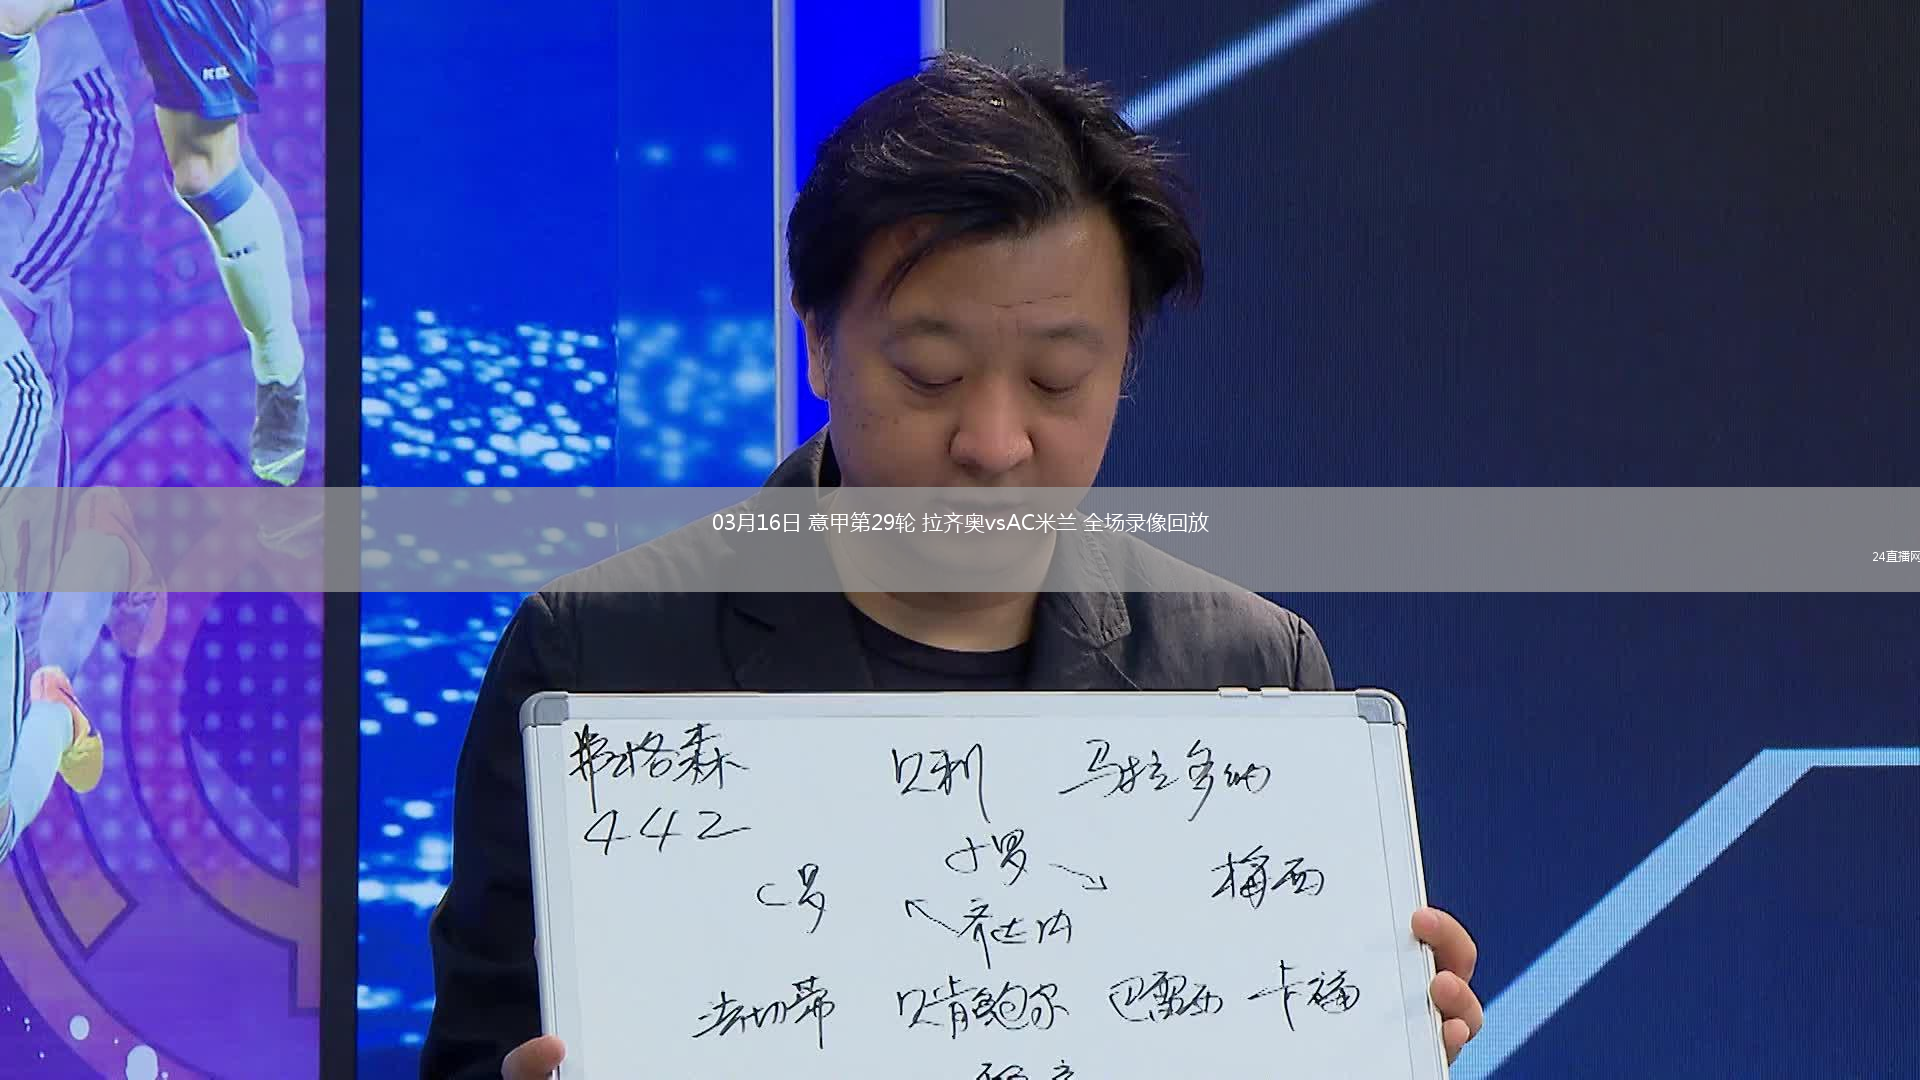 03月16日 意甲第29轮 拉齐奥vsAC米兰 全场录像回放
24直播网
弗格森 贝利 马拉多纳
442
小罗
C罗 梅西
齐达内
法切蒂 贝肯鲍尔 巴雷西 卡福